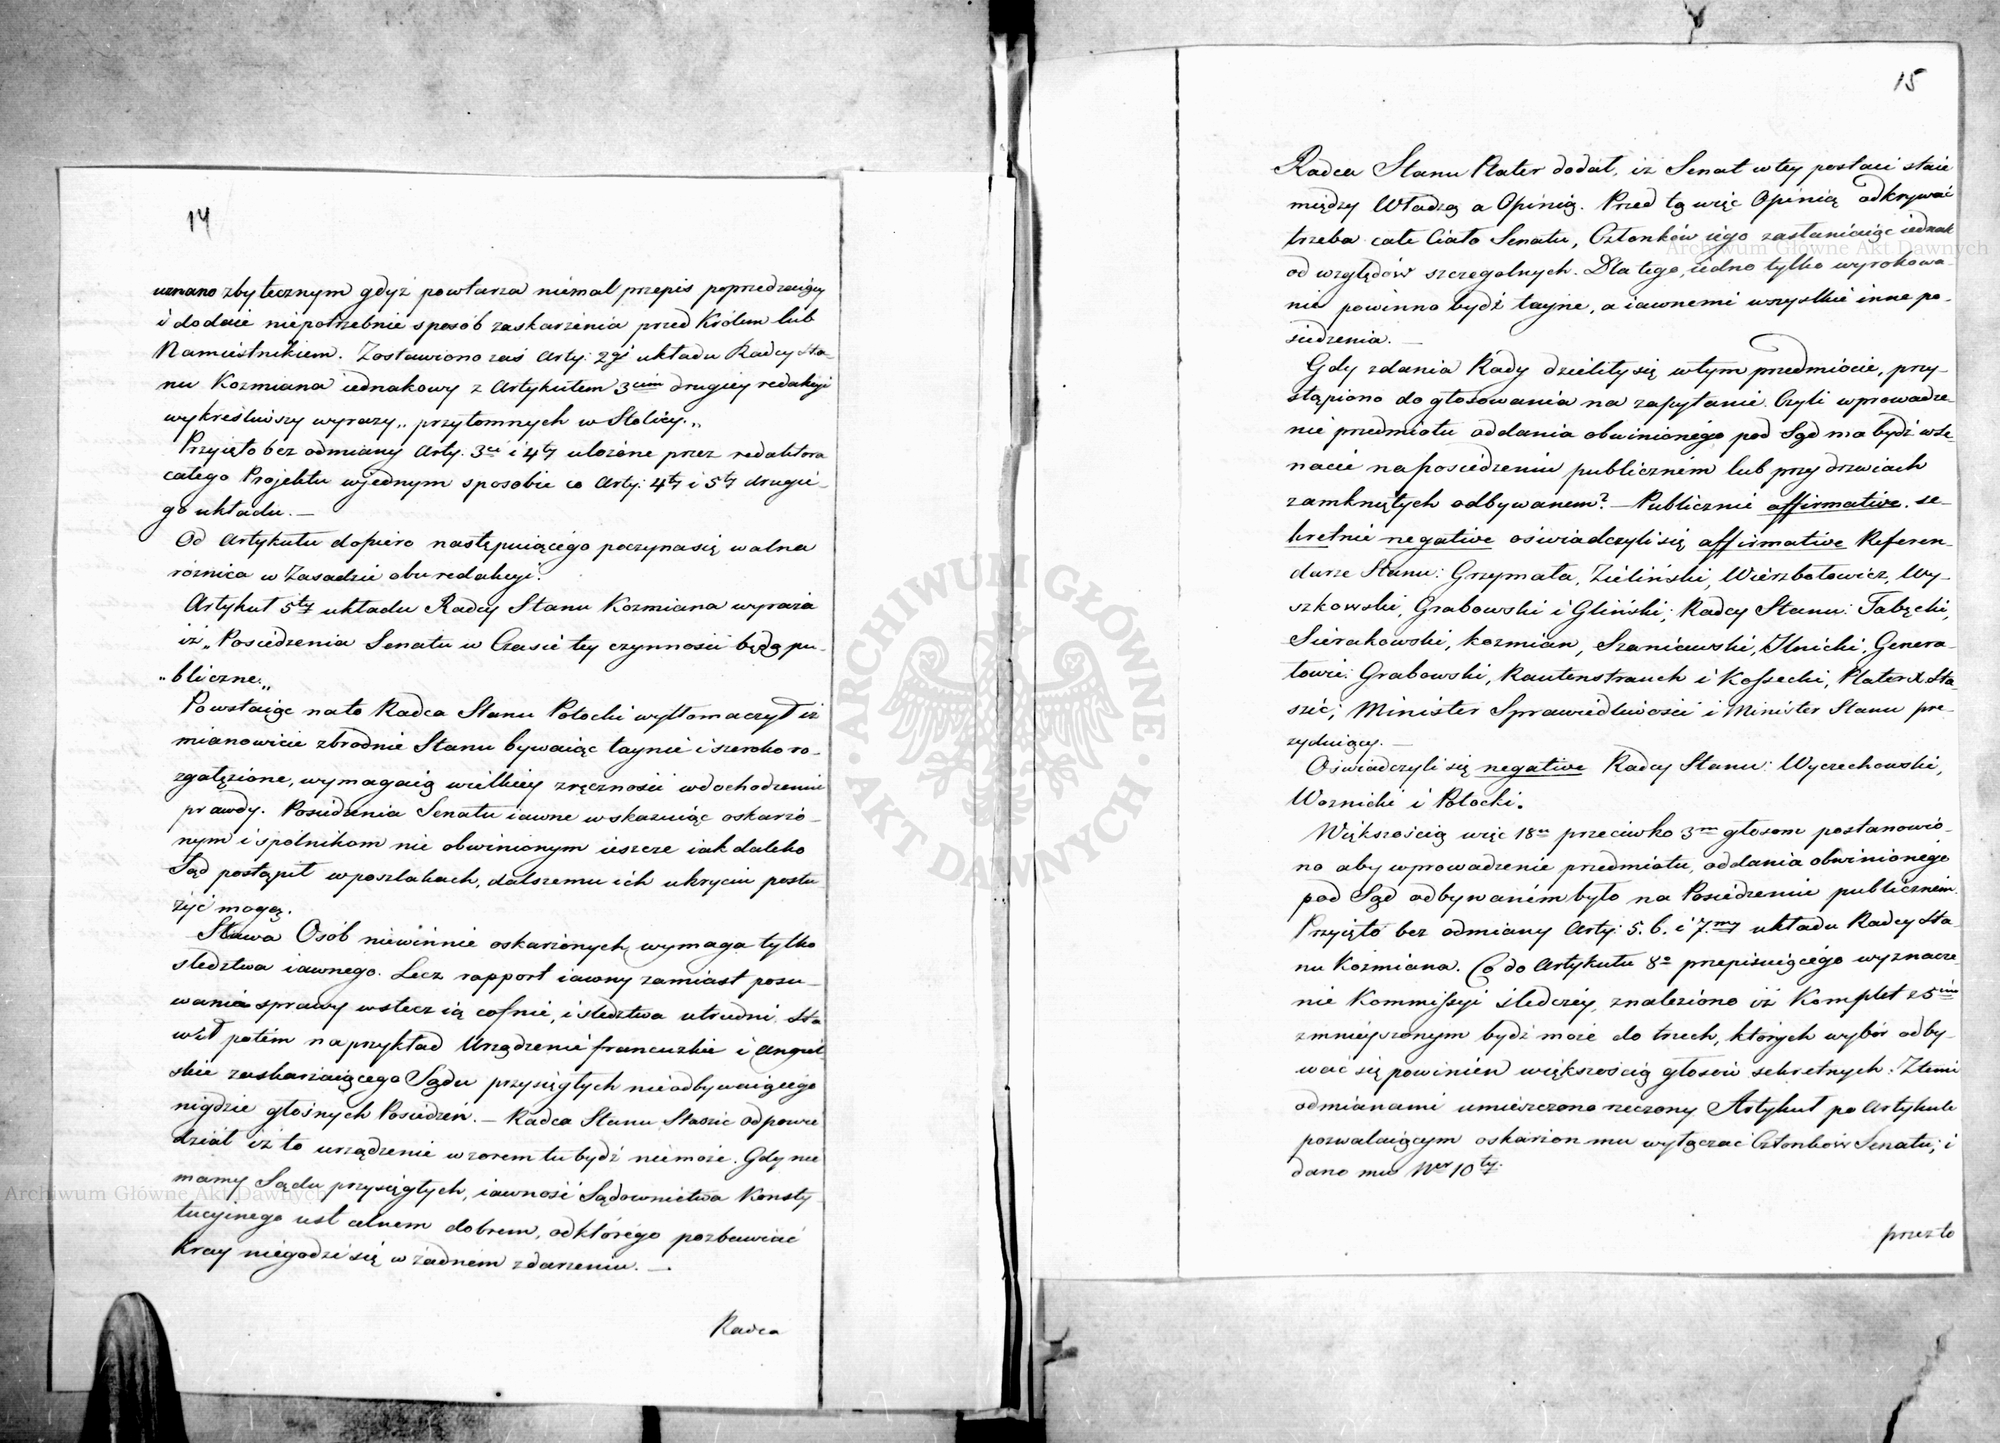 14
uznano zbytecznym gdyż powtarza niemal przepis poprzedzaiący
i dodaie niepotrzebnie sposób zaskarżenia przed Królem lub
Namiestnikiem. Zostawiono zaś Arty: 2gi układu Radcy Sta-
nu Kozmiana iednakowy z Artykułem 3cim drugiey redakcyi
wykreśliwszy wyrazy „ przytomnych w Stolicy. „
Przyięto bez odmiany Arty. 3ci i 4ty ułożone przez redaktora
całego Projektu wjednym sposobie co Arty: 4ty i 5ty drugie-
go układu. —
Od Artykułu dopiero następuiącego poczyna się walna
różnica w Zasadzie obu redakcyi.
Artykuł 5ty układu Radcy Stanu Kozmiana wyraża
iż „ Posiedzenia Senatu w Czasie tey czynności będą pu-
„ bliczne. „
Powstaiąc na to Radca Stanu Potocki wytłomaczył iż
mianowicie zbrodnie Stanu bywaiąc taynie i szeroko ro-
zgałęzione, wymagaią wielkiey zręczności w dochodzeniu
prawdy. Posiedzenia Senatu iawne wskazuiąc oskarżo-
nym i spólnikom nie obwinionym ieszcze iak daleko
Sąd postąpił w poszlakach, dalszemu ich ukryciu posłu
żyć mogą.
Sława Osób niewinnie oskarżonych wymaga tylko
śledztwa iawnego. Lecz rapport iawny zamiast posu-
wania sprawy wstecz ią cofnie, i śledztwa utrudni. Sta
wił potém na przykład Urządzenie francuzkie i Angiel
skie zaskarżaiącego Sądu przysięgłych nieodbywaiącego
nigdzie głośnych Posiedzeń. — Radca Stanu Staszic odpowie
dział iż to urządzenie wzorem tu bydź niemoże. Gdy nie
mamy Sądu przysięgłych, iawność Sądownictwa Konsty
tucyinego iest celnem dobrem, od którego pozbawiać
Kray niegodzi się w żadnem zdarzeniu. —.
Radca
15
Radca Stanu Plater dodał, iż Senat w tey postaci staie
między Władzą a Opinią. Przed tą więc Opinią odkrywać
trzeba całe Ciało Senatu, Członków iego zasłaniaiąc iednak
od względów szczególnych. Dla tego, iedno tylko wyrokowa-
nie powinno bydź tayne, a iawnemi wszystkie inne po-
siedzenia. —
Gdy zdania Rady dzieliły się w tym przedmiocie, przy-
stąpiono do głosowania na zapytanie. Czyli wprowadze-
nie przedmiotu oddania obwinionego pod Sąd ma bydź w Se-
nacie na posiedzeniu publiczném lub przy drzwiach
zamkniętych odbywanem? — Publicznie affirmative. se-
kretnie negative oświadczyli się affirmative Referen-
darze Stanu: Grzymała, Zieliński, Wierzbołowicz, Wy-
szkowski, Grabowski i Gliński; Radcy Stanu: Tabęcki,
Sierakowski, Kozmian, Szaniawski, Ilnicki; Genera-
łowie: Grabowski, Rautenstrauch i Kossecki, Plater X Sta-
szic; Minister Sprawiedliwości i Minister Stanu pre-
zyduiący. —
Oświadczyli się negative Radcy Stanu: Wyczechowski,
Woznicki i Potocki.
Większością więc 18u przeciwko 3m głosom postanowio-
no aby wprowadzenie przedmiotu, oddania obwinionego
pod Sąd odbywaném było na Posiedzeniu publiczném.
Przyięto bez odmiany Arty: 5. 6. i 7.my układu Radcy Sta
nu Kozmiana. Co do Artykułu 8o przepisuiącego wyznacze-
nie Kommissyi śledczéy, znaleziono iż Komplet 25ciu
zmnieyszonym bydź może do trzech, których wybór odby-
wać się powinien większością głosów sekretnych. Z temi
odmianami umieszczono rzeczony Artykuł po Artykule
pozwalaiącym oskarżonemu wyłączać Członków Senatu; i
dano mu Ner 10ty.
przez to
Archiwum Główne Akt Dawnych
Archiwum Główne Akt Dawnych
ARCHIWUM GŁÓWNE
AKT DAWNYCH